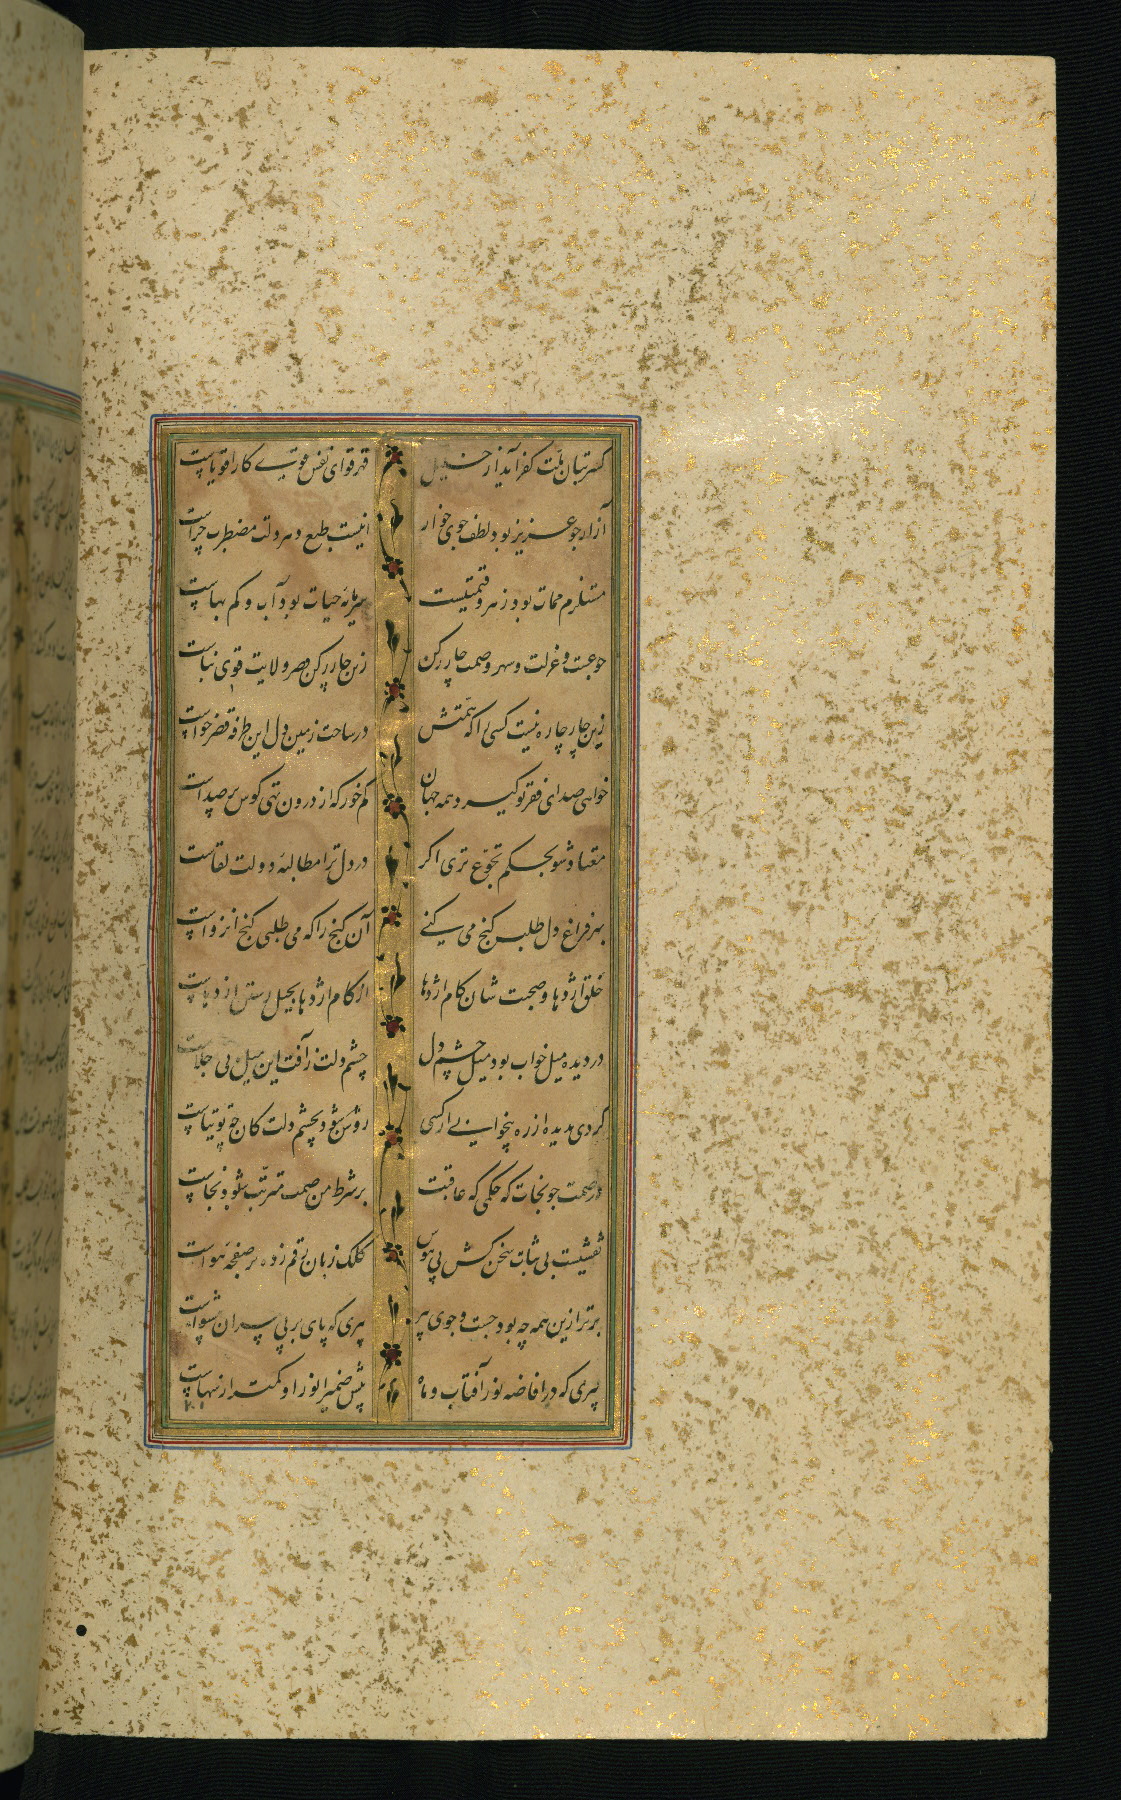 کسر بتان ملت کفر آید از خلیل قهر قوای نفس قوی کار اقویاست
آزار جو عزیز بود لطف جوی خوار
مستلزم ممات بود زهر و قیمتیست سرمایهٔ حیات بود آب و کم بهاست
جوعست و عزلت و سهر و صمت چار رکن زین چار رکن قصر ولایت قوی بناست
زین چار چاره نیست کسی را که همتش در ساحت زمین دل این طرفه قصر خواست
خواهی صدای فقر تو گیرد همه جهان کم خور که از درون تهی کوس پر صداست
معتاد شو بحکم تجوّع تری اکر در دل ترا مطالبهٔ دولت لقاست
بهر فراغ دل طلب کنج می کنی آن کنج را که می طلبی کنج انزواست
خلق اژدها و صحبت شان کام اژدها از کام اژدها بحیل رستن از دهاست
در دیده میل خواب بود میل چشم دل چشم دلت ز آفت این میل بی جلاست
کردی بدیده از ره بیخوابی ار کشی روشن شود بچشم دلت کان چه توتیاست
در صمت جو نجات که حکمی که عاقبت بر شرط من صمت مترتّب شود نجاست
نقشیست بی ثبات سخن کش پی هوس کلک زبان رقم زده بر صفحهٔ هواست
برتر ازین همه چه بود جست و جوی پیر پیری که پای بر پی پیران پیشواست
پیری که در افاضه نور آفتاب و ماه پیش ضمیر انور او کمتر از سهاست